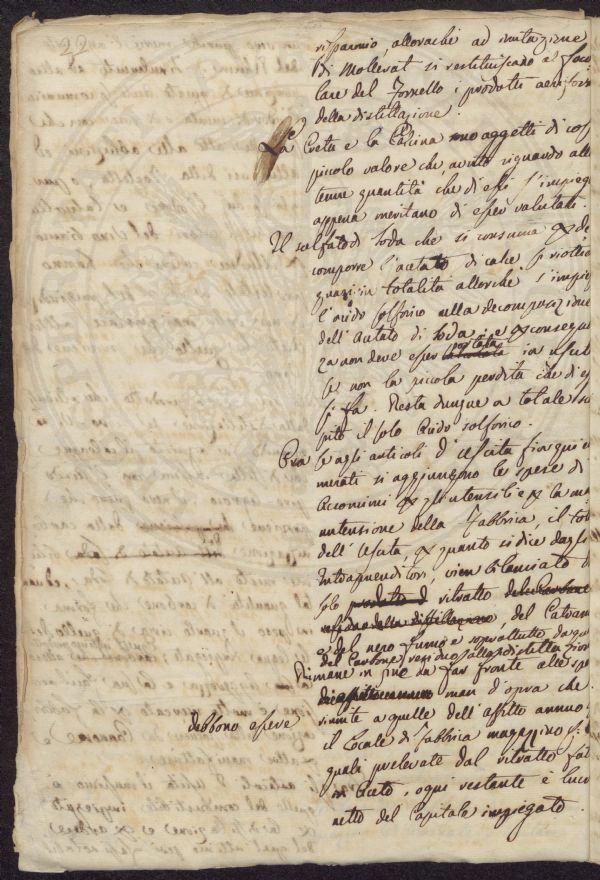 22
risparmio, allorachè ad imitazione
di Mollerat si restituiscano al foco
lare del Fornello i prodotti aeriformi
della distillazione.
La Creta e la Calcina sono oggetti di così
piccolo valore che, avuto riguardo alla
tenue quantità che di essi s'impiega
appena meritano di esser valutati.
Il solfato di soda che si consuma per de
comporre l'acetato di calce si
quasi in totalità allorchè s'impiega
l'acido solforico nella decomposizione
dell'Acetato di Soda; e per conseguen
za non deve esser portata in uscita
se non la piccola perdita che di esso
si fa. Resta dunque a totale
il solo Acido solforico.
Ora se agli articoli d'uscita fin qui enu
merati si aggiungono le spese di
Acconcimi per gli utensili e per la ma
nutensione della Fabbrica, il tot
dell'Uscita, per quanto si dice dagli
Intraprenditori, vien bilanciato dal
solo prodotto ritratto del Carbone
della distillazione, del Catrame
e del nero fumo e soprattutto da quello
del Carbone residuo alla distillazione
Rimane in fine da far fronte alle spese
man d'opra che
riunite a quelle dell'affitto annuo
il Locale di Fabbrica magazzino
debbono essere
quali prelevate dal ritratto
in Aceto, ogni restante è lucro
netto del Capitale impiegato.